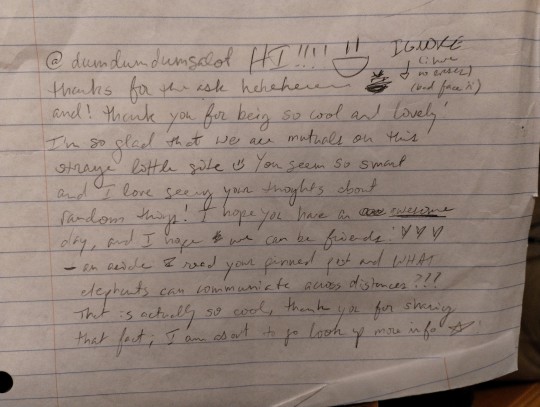 @dumdumdumsalot HI!!!! IGNORE
(i have
no eraser)
(bad face ti)
thanks for the ask heheheheee
and! thank you for being so cool and lovely!
I'm so glad that we are mutuals on this
strange little site :) You seem so smart
and I love seeing your thoughts about
random things! I hope you have an awesome
day, and I hope we can be friends! ♡♡♡
- an aside I read your pinned post and WHAT
elephants can communicate across distances???
That is actually so cool, thank you for sharing
that fact, I am about to go look up more info ☆